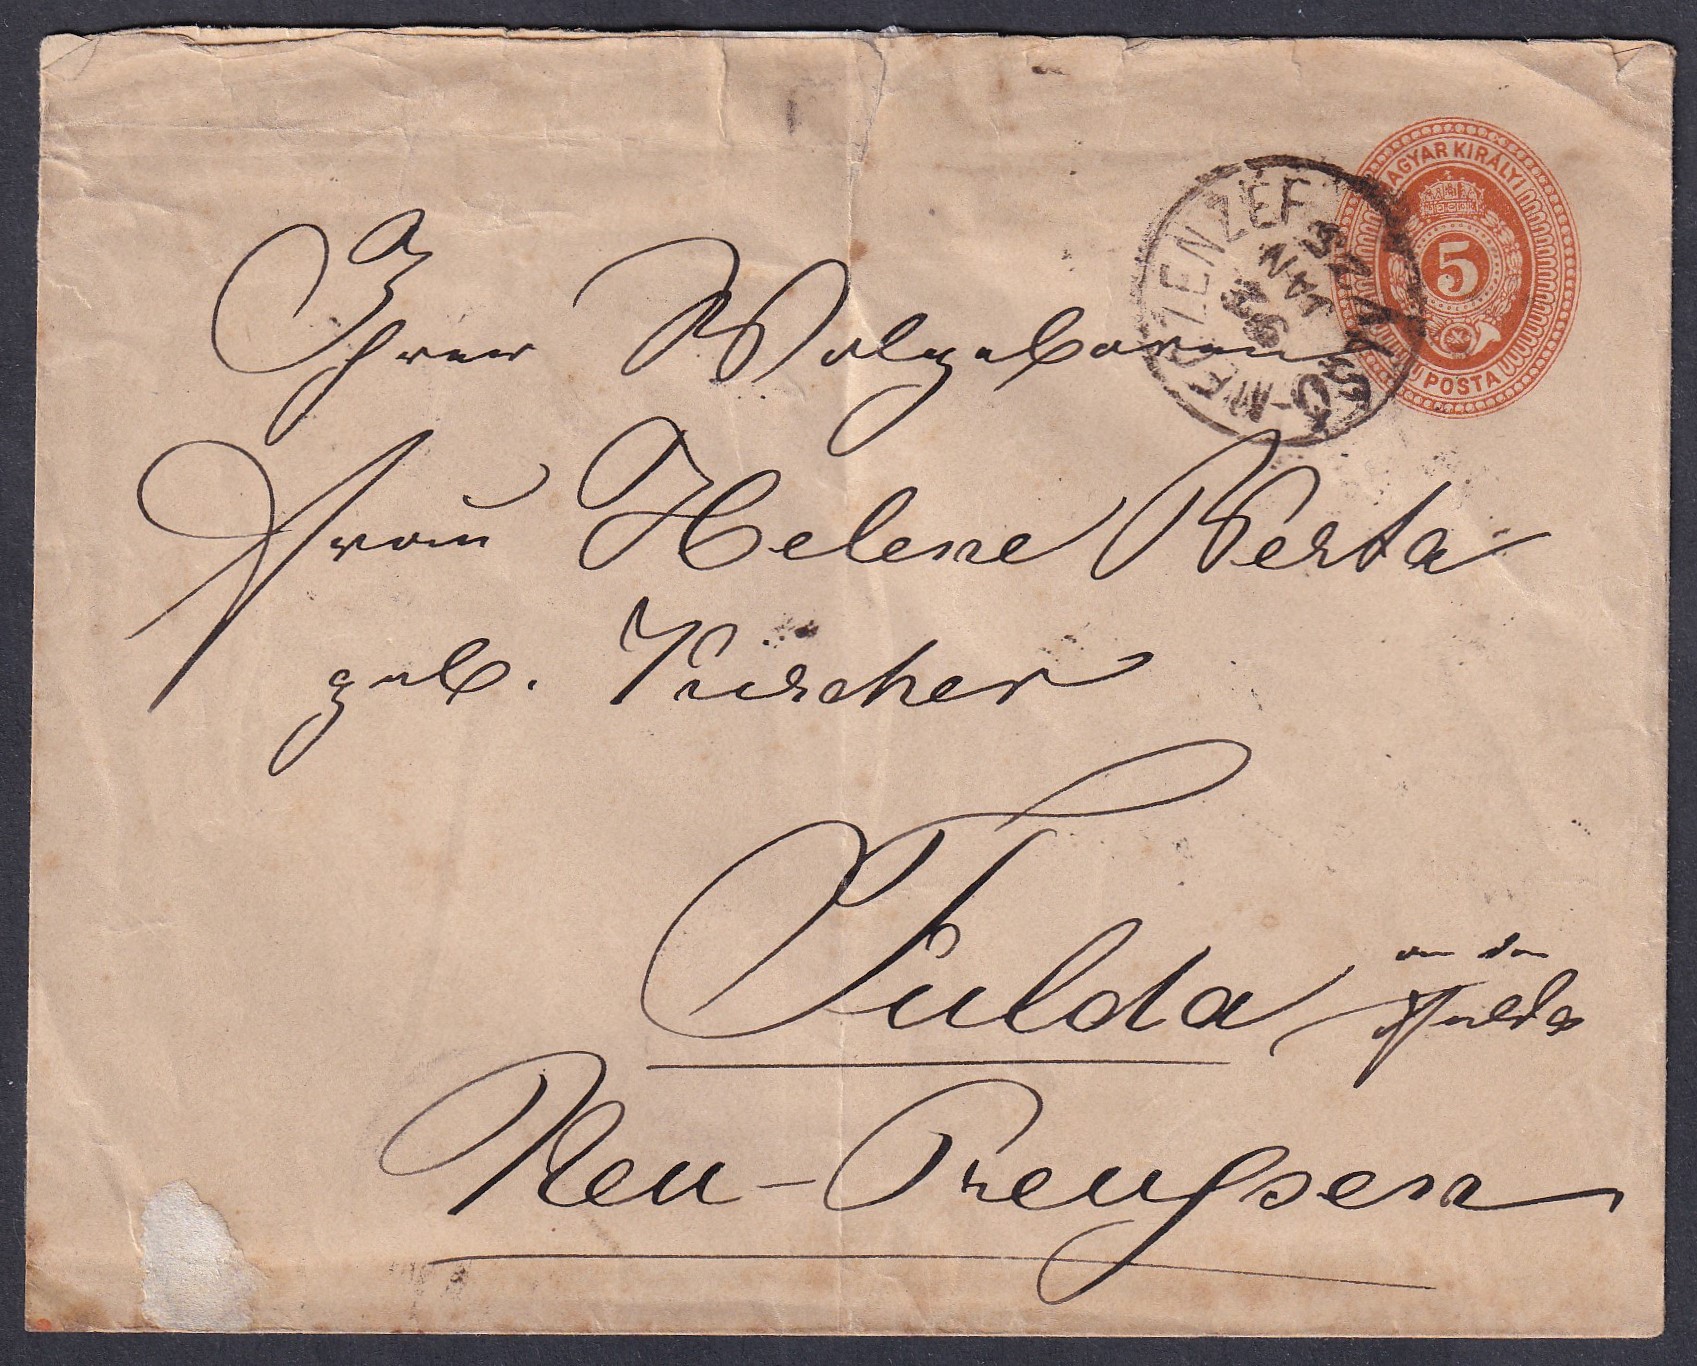 MAGYAR KIRÁLYI
5
POSTA
JAN
Ihrer Wolgeboren
Frau Helene Werta
geb. Kürcher
Fulda an der
Fulda
Neu-Preußen